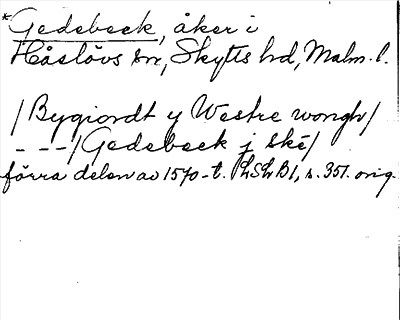 *Gedebeck, åker i
Håslövs sn, Skytts hd, Malm. l.
/Bygiordt y Westre wongh/
- - -/Gedebeck j ské/
förra delen av 1570-t. LSLB1, s. 351. orig.